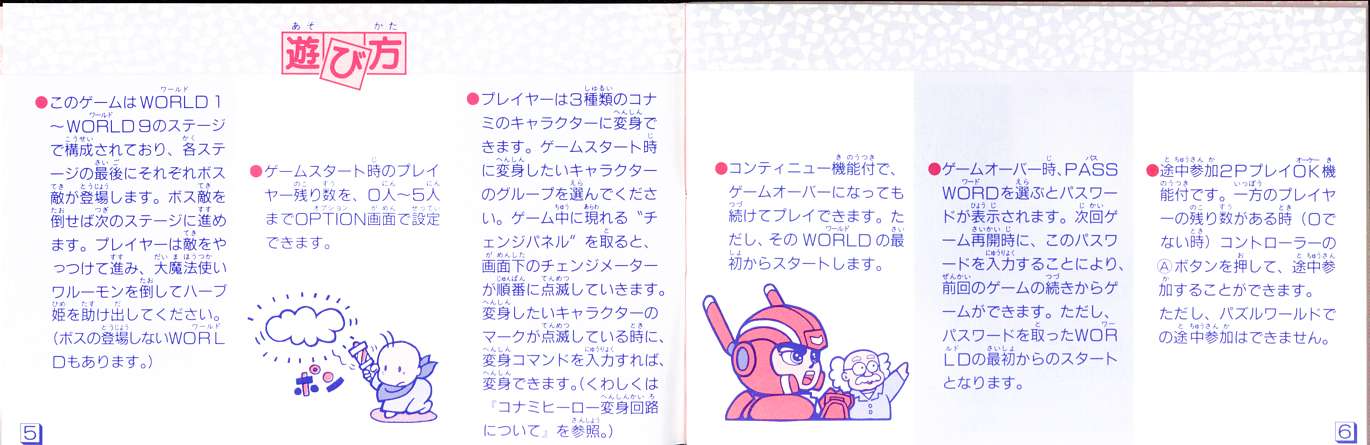 遊び方
●このゲームはWORLD1
～WORLD9のステージ
で構成されており、各ステ
ージの最後にそれぞれボス
敵が登場します。ボス敵を
倒せば次のステージに進め
ます。プレイヤーは敵をや
っつけて進み、大魔法使い
ワルーモンを倒してハーブ
姫を助け出してください。
(ボスの登場しないWORL
Dもあります。)
●ゲームスタート時のプレイ
ヤー残り数を、0人～5人
までOPTION画面で設定
できます。
ポン
●プレイヤーは3種類のコナ
ミのキャラクターに変身で
きます。ゲームスタート時
に変身したいキャラクター
のグループを選んでくださ
い。ゲーム中に現れる〝チ
ェンジパネル〟を取ると、
画面下のチェンジメーター
が順番に点滅していきます。
変身したいキャラクターの
マークが点滅している時に、
変身コマンドを入力すれば、
変身できます。(くわしくは
『コナミヒーロー変身回路
について』を参照。)
5
●コンティニュー機能付で、
ゲームオーバーになっても
続けてプレイできます。た
だし、そのWORLDの最
初からスタートします。
●ゲームオーバー時、PASS
WORDを選ぶとパスワー
ドが表示されます。次回ゲ
ーム再開時に、このパスワ
ードを入力することにより、
前回のゲームの続きからゲ
ームができます。ただし、
パスワードを取ったWOR
LDの最初からのスタート
となります。
●途中参加2PプレイOK機
能付です。一方のプレイヤ
ーの残り数がある時(0で
ない時)コントローラーの
Ⓐボタンを押して、途中参
加することができます。
ただし、パズルワールドで
の途中参加はできません。
6